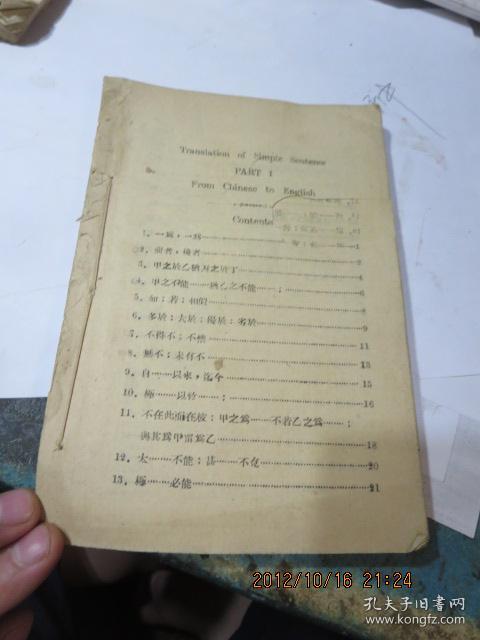 Translation of Simple Sentence
PART I
From Chinese to English
Contents
2
3. 甲之於乙猶丙之於丁 4
4. 甲之不能……猶乙之不能……; 6
5. 如;若;相似 8
6. 多於;去於;優於;劣於 9
7. 不得不;不禁 11
8. 無不;未有不 13
9. 自……以來,迄今 15
10. 極……以致……; 16
11. 不在此而在彼;甲之爲……不若乙之爲……;
與其爲甲寧爲乙 18
12. 太……不能;甚……不克 20
13. 極……必能 21
2012/10/16 21:24
孔夫子旧书网
www.kongfz.com